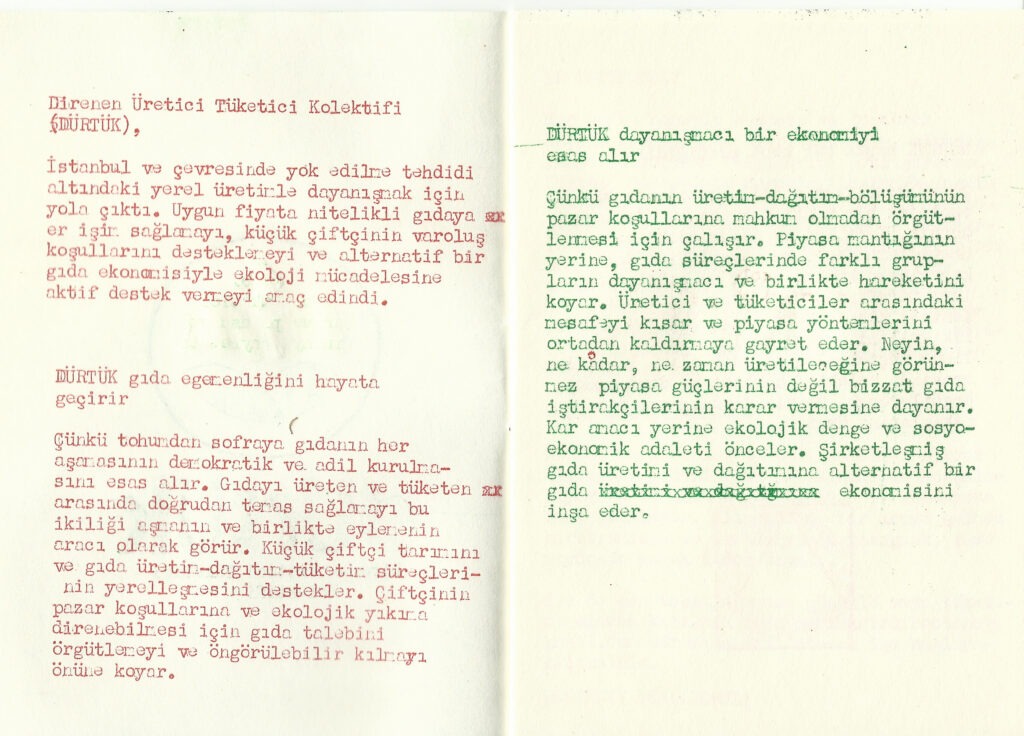 Direnen Üretici Tüketici Kolektifi
(DÜRTÜK),
İstanbul ve çevresinde yok edilme tehdidi
altındaki yerel üretimle dayanışmak için
yola çıktı. Uygun fiyata nitelikli gıdaya
er işim sağlamayı, küçük çiftçinin varoluş
koşullarını desteklemeyi ve alternatif bir
gıda ekonomisiyle ekoloji mücadelesine
aktif destek vermeyi amaç edindi.
DÜRTÜK gıda egemenliğini hayata
geçirir
Çünkü tohumdan sofraya gıdanın her
aşamasının demokratik ve adil kurulma-
sını esas alır. Gıdayı üreten ve tüketen
arasında doğrudan temas sağlamayı bu
ikiliği aşmanın ve birlikte eylemenin
aracı olarak görür. Küçük çiftçi tarımını
ve gıda üretim-dağıtım-tüketim süreçleri-
nin yerelleşmesini destekler. Çiftçinin
pazar koşullarına ve ekolojik yıkıma
direnebilmesi için gıda talebini
örgütlemeyi ve öngörülebilir kılmayı
önüne koyar.
DÜRTÜK dayanışmacı bir ekonomiyi
esas alır
Çünkü gıdanın üretim-dağıtım-bölüşümünün
pazar koşullarına mahkum olmadan örgüt-
lenmesi için çalışır. Piyasa mantığının
yerine, gıda süreçlerinde farklı grup-
ların dayanışmacı ve birlikte hareketini
koyar. Üretici ve tüketiciler arasındaki
mesafeyi kısar ve piyasa yöntemlerini
ortadan kaldırmaya gayret eder. Neyin,
ne kadar, ne zaman üretileceğine görün-
mez piyasa güçlerinin değil bizzat gıda
iştirakçilerinin karar vermesine dayanır.
Kar amacı yerine ekolojik denge ve sosyo-
ekonomik adaleti önceler. Şirketleşmiş
gıda üretimi ve dağıtımına alternatif bir
gıda ekonomisini
inşa eder.